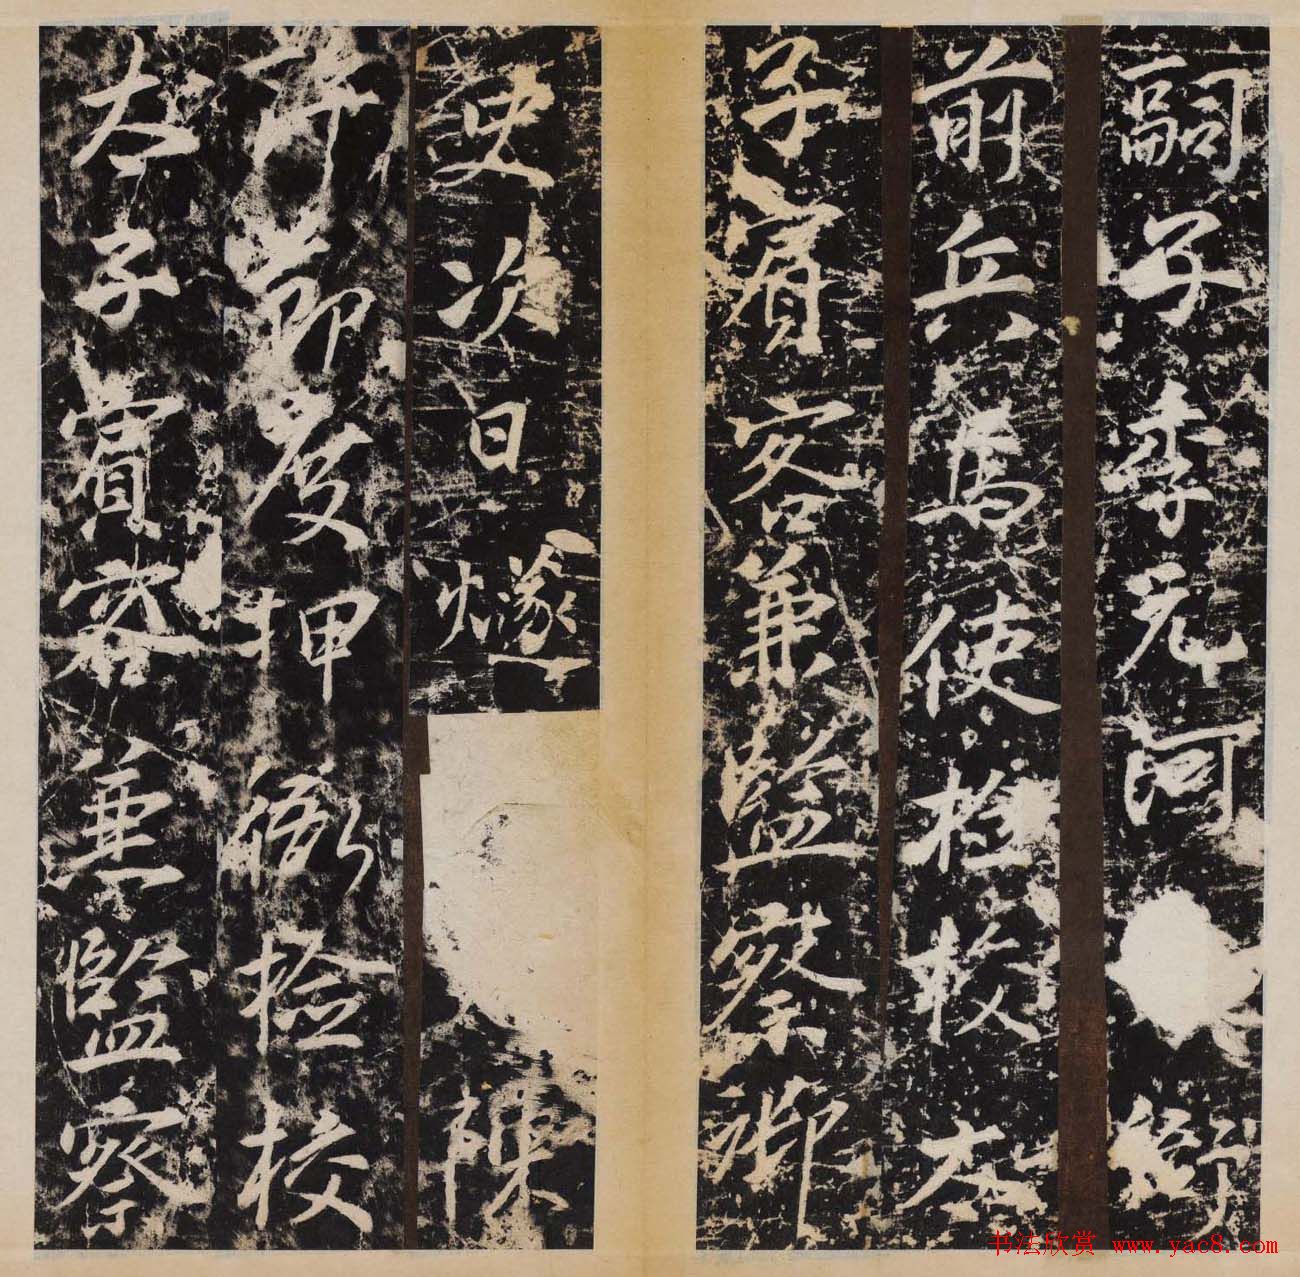 嗣子季元河
前兵馬使檢校太
子賓客兼監察御
史次曰
許節度押衙檢校
太子賓客兼監察
书法欣赏 www.yac8.com